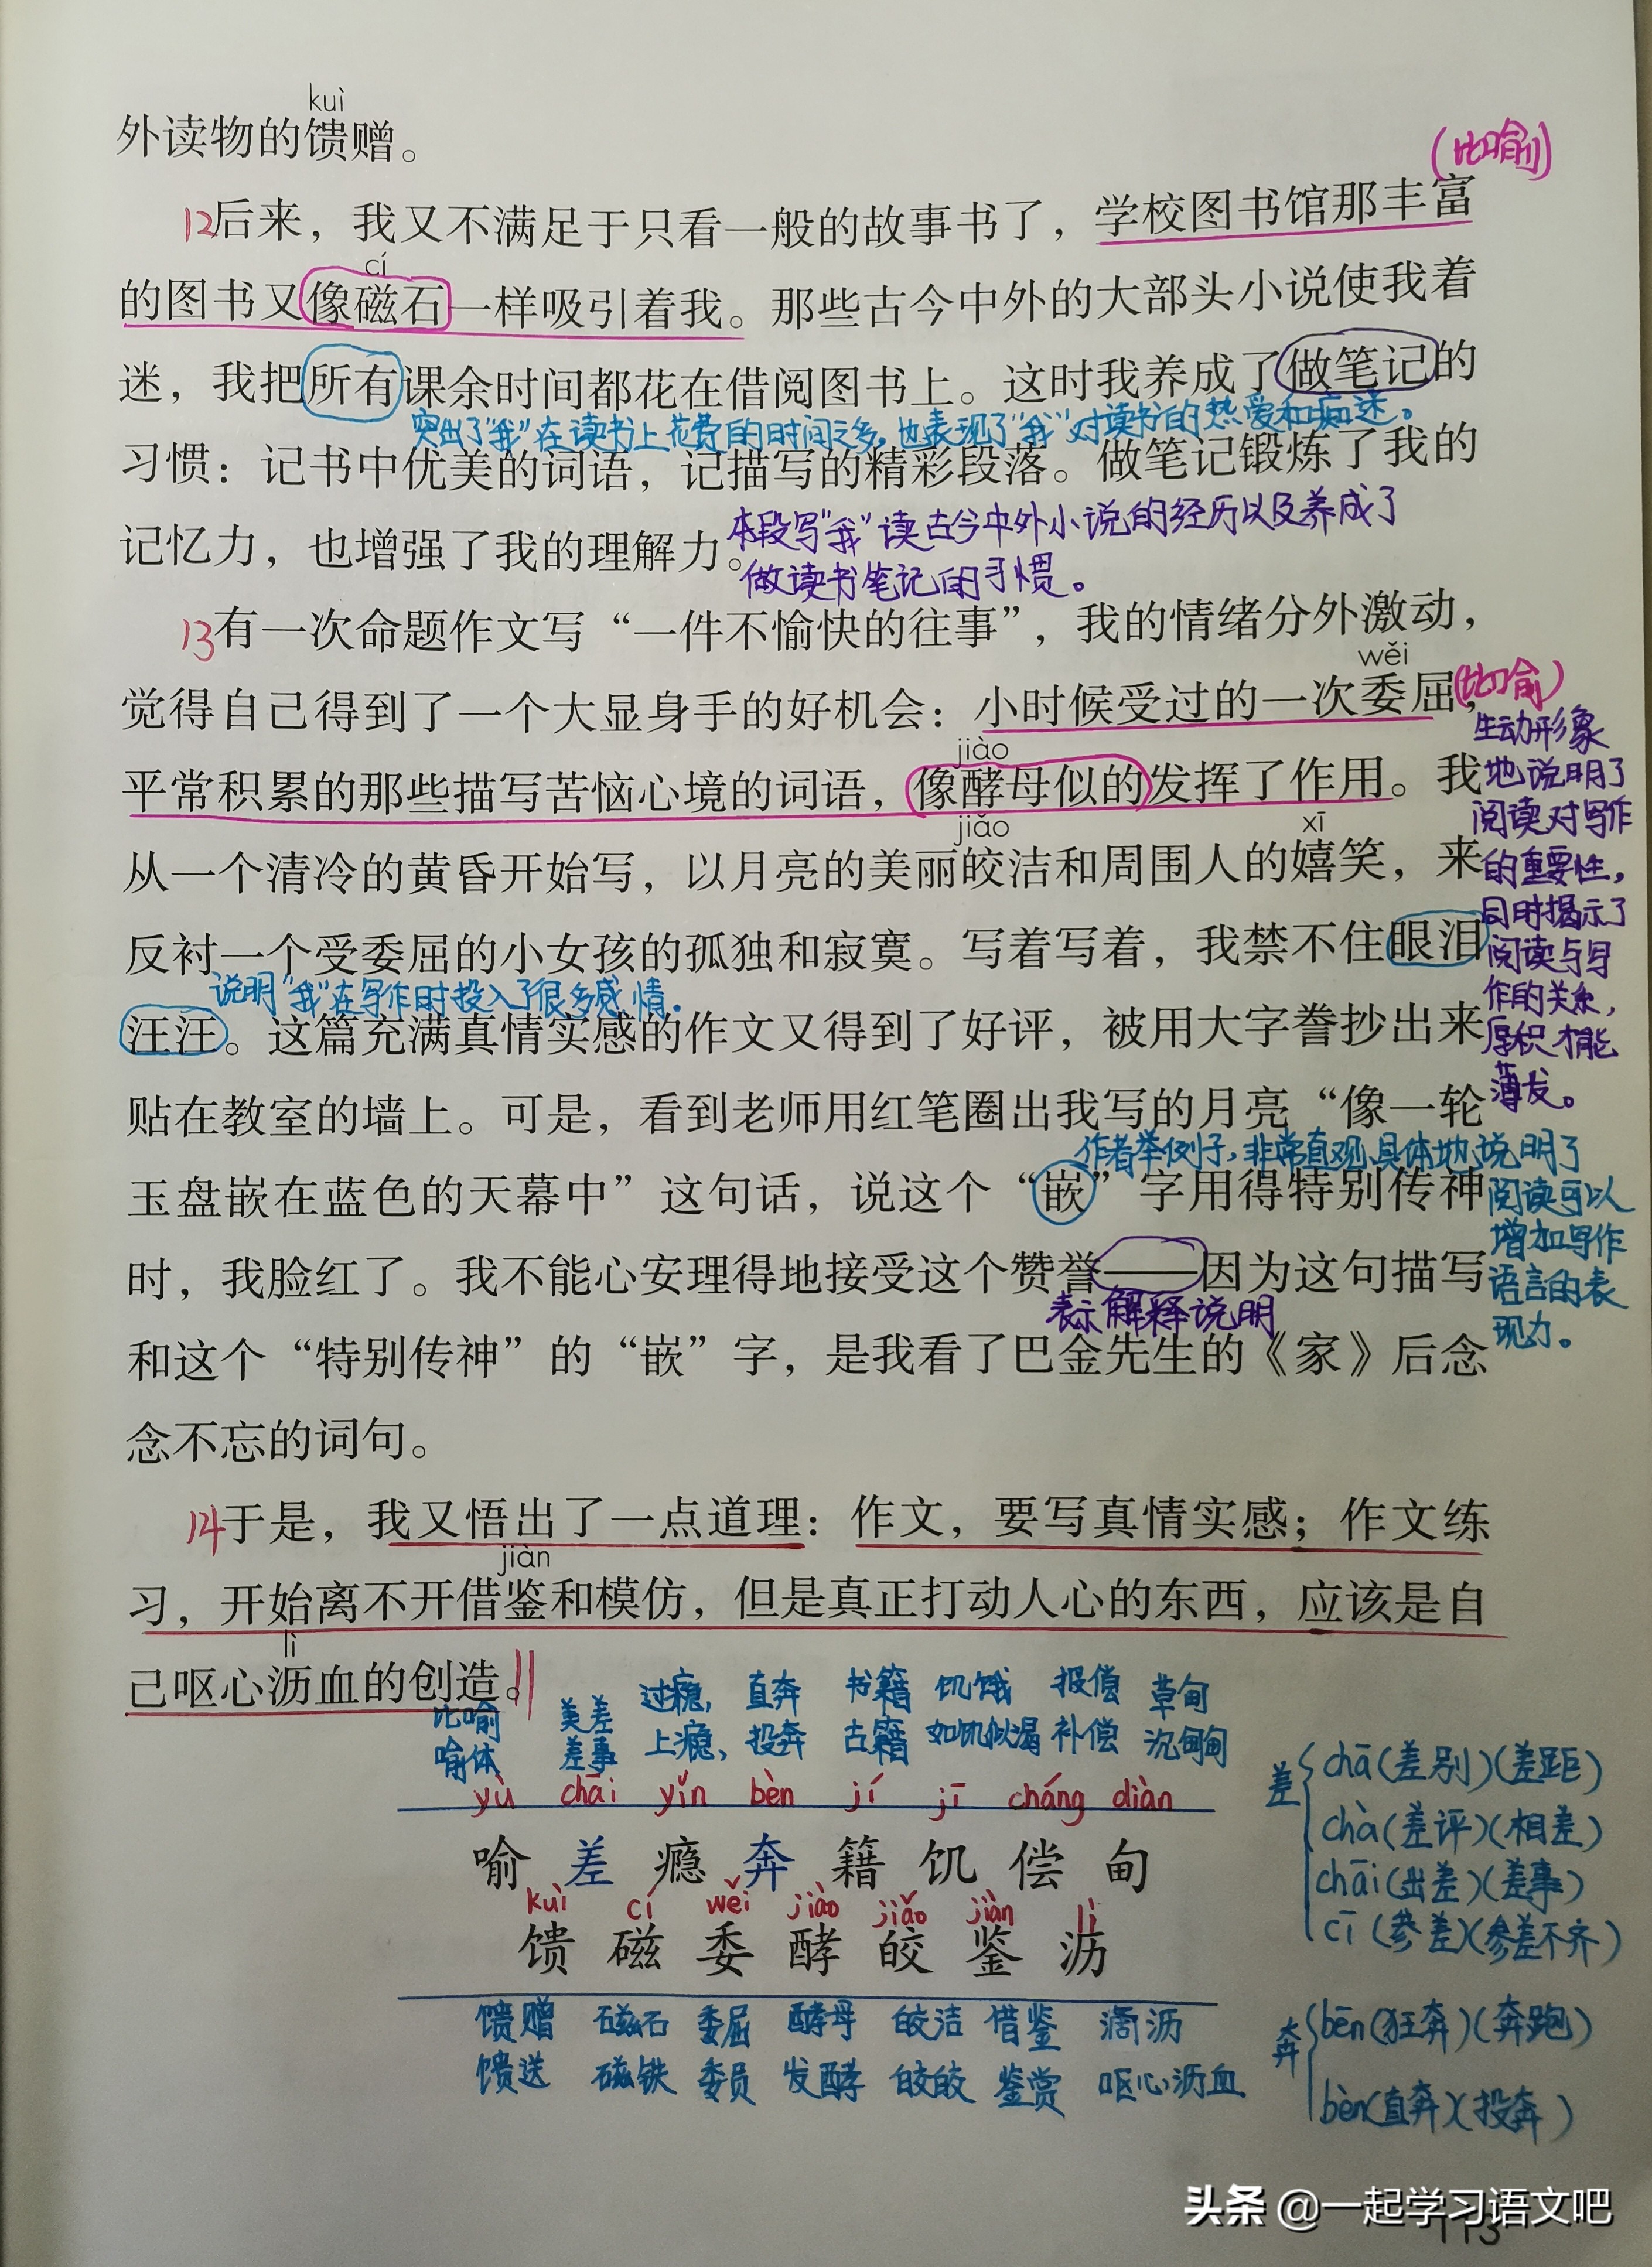 kuì
外读物的馈赠。
(比喻)
12后来，我又不满足于只看一般的故事书了，学校图书馆那丰富
cí
的图书又像磁石一样吸引着我。那些古今中外的大部头小说使我着
迷，我把所有课余时间都花在借阅图书上。这时我养成了做笔记的
突出了“我”在读书上花费的时间之多，也表现了“我”对读书的热爱和痴迷。
习惯：记书中优美的词语，记描写的精彩段落。做笔记锻炼了我的
记忆力，也增强了我的理解力。
本段写“我”读古今中外小说的经历以及养成了
做读书笔记的习惯。
13有一次命题作文写“一件不愉快的往事”，我的情绪分外激动，
wěi
觉得自己得到了一个大显身手的好机会：小时候受过的一次委屈，
(比喻)
jiào
平常积累的那些描写苦恼心境的词语，像酵母似的发挥了作用。我
jiǎo xī
从一个清冷的黄昏开始写，以月亮的美丽皎洁和周围人的嬉笑，来
反衬一个受委屈的小女孩的孤独和寂寞。写着写着，我禁不住眼泪
说明“我”在写作时投入了很多感情。
汪汪。这篇充满真情实感的作文又得到了好评，被用大字誊抄出来
贴在教室的墙上。可是，看到老师用红笔圈出我写的月亮“像一轮
生动形象
地说明了
阅读对写作
的重要性，
同时揭示了
阅读与写
作的关系，
厚积才能
薄发。
作者举例子，非常直观、具体地说明了
玉盘嵌在蓝色的天幕中”这句话，说这个“嵌”字用得特别传神
阅读可以
增加写作
语言的表
现力。
时，我脸红了。我不能心安理得地接受这个赞誉——因为这句描写
表示解释说明
和这个“特别传神”的“嵌”字，是我看了巴金先生的《家》后念
念不忘的词句。
14于是，我又悟出了一点道理：作文，要写真情实感；作文练
jiàn
习，开始离不开借鉴和模仿，但是真正打动人心的东西，应该是自
lì
己呕心沥血的创造。
比喻 美差 过瘾， 直奔 书籍 饥饿 报偿 草甸
喻体 差事 上瘾， 投奔 古籍 如饥似渴 补偿 沉甸甸
yù chāi yǐn bèn jí jī cháng diàn
喻 差 瘾 奔 籍 饥 偿 甸
kuì cí wěi jiào jiǎo jiàn lì
馈 磁 委 酵 皎 鉴 沥
馈赠 磁石 委屈 酵母 皎洁 借鉴 滴沥
馈送 磁铁 委员 发酵 皎皎 鉴赏 呕心沥血
差
chā(差别)(差距)
chà(差评)(相差)
chāi(出差)(差事)
cī(参差)(参差不齐)
奔
bēn(狂奔)(奔跑)
bèn(直奔)(投奔)
头条 @一起学习语文吧
113